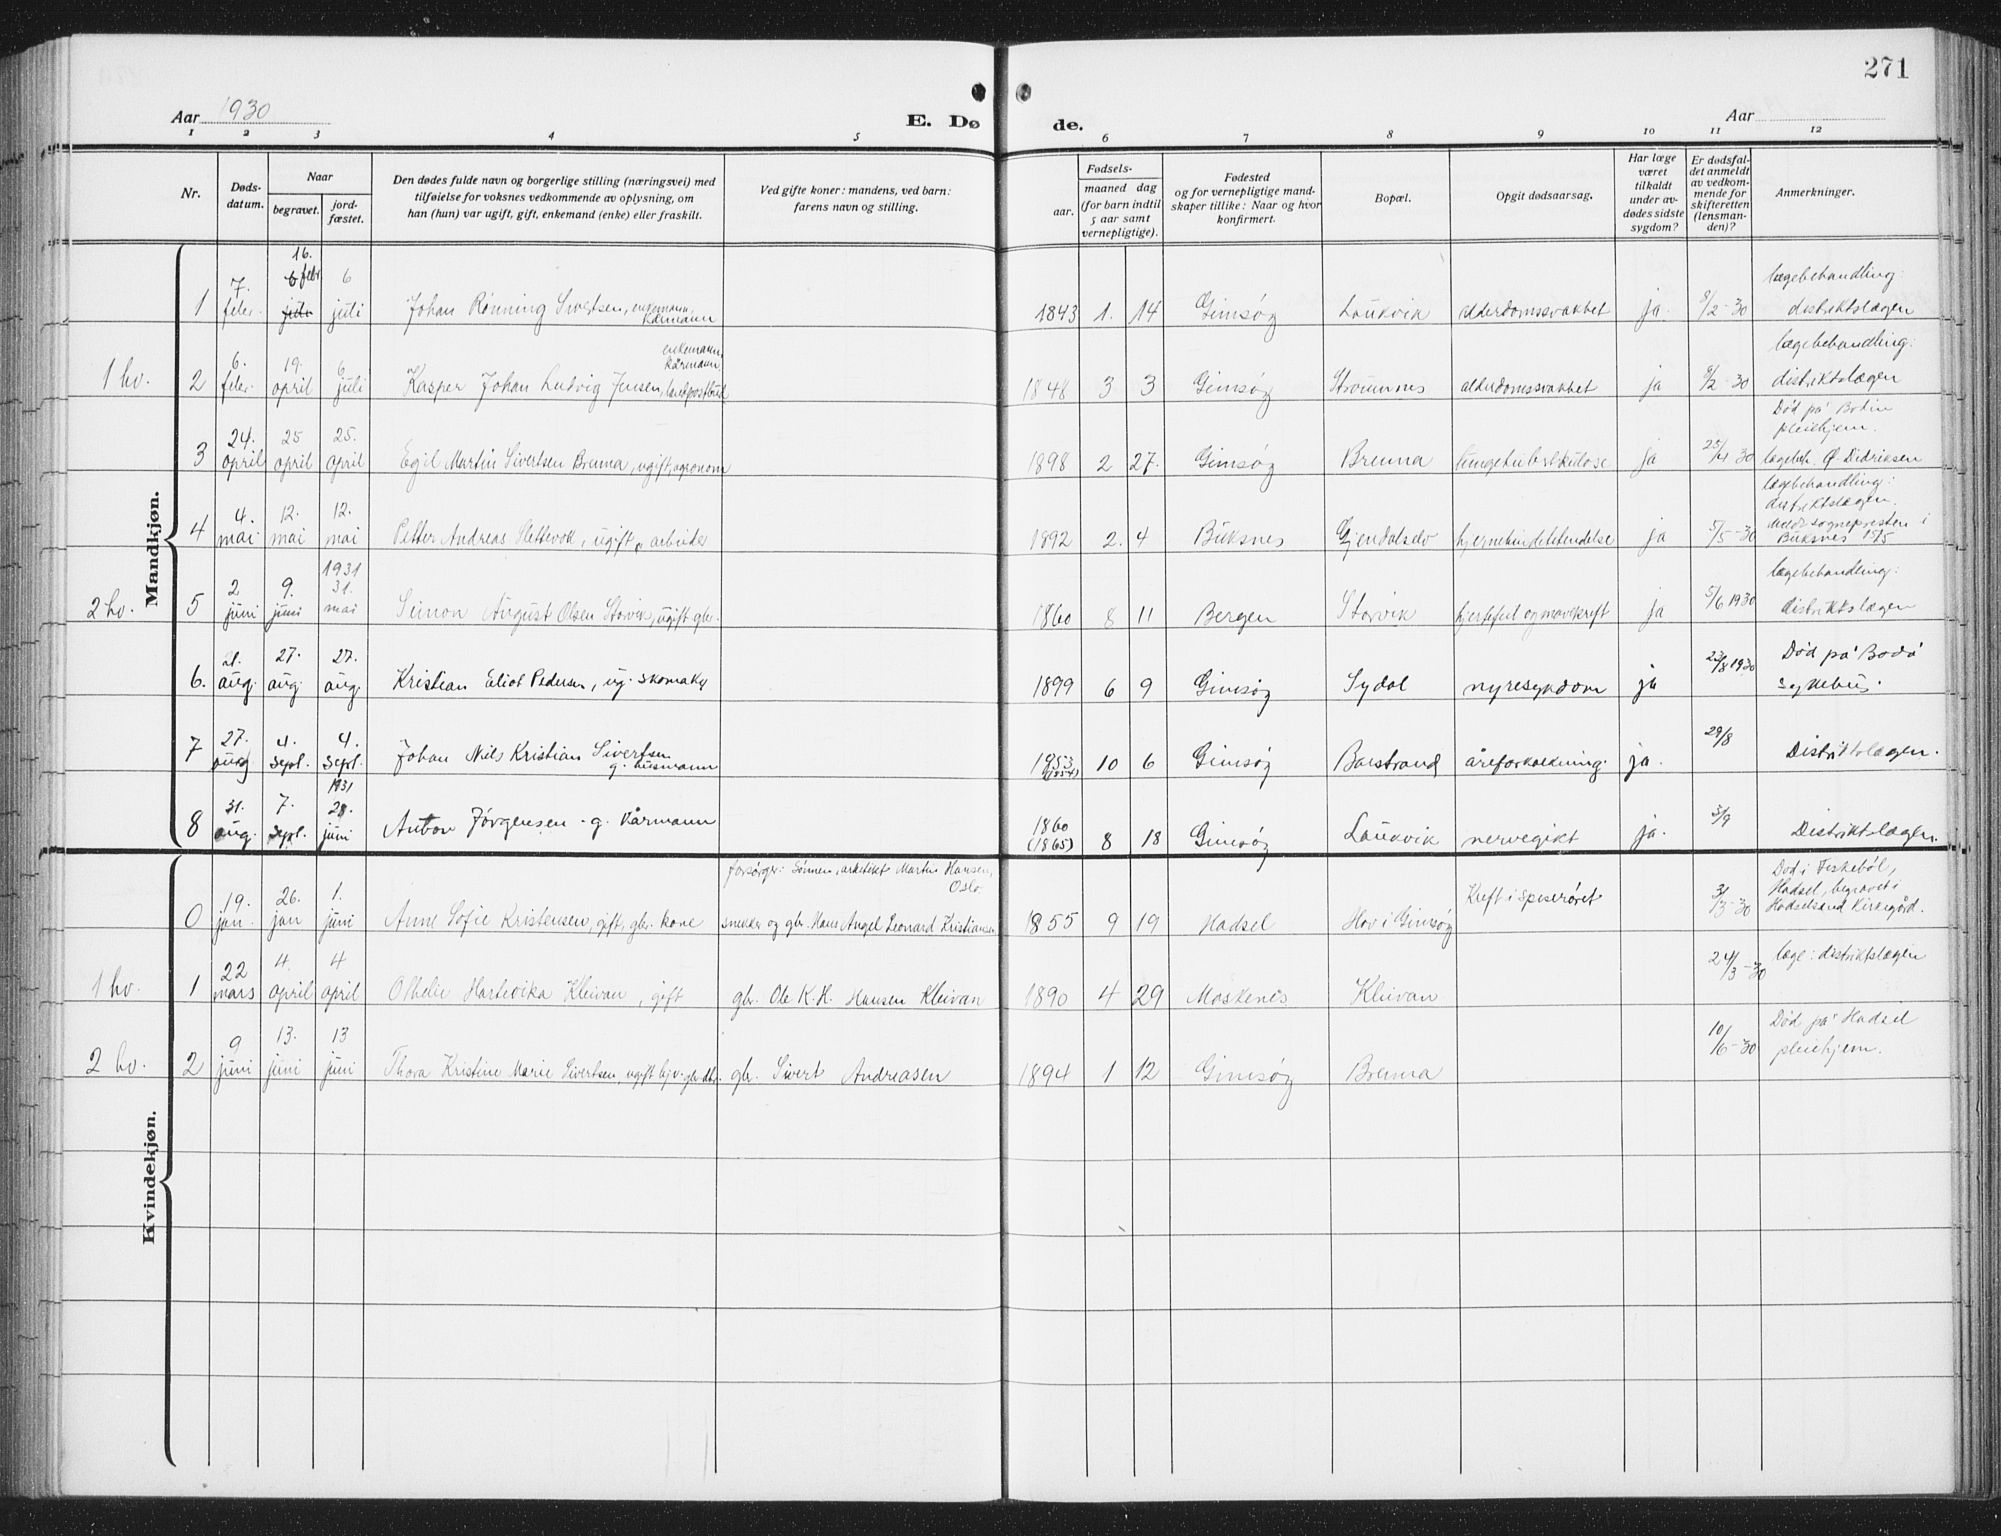 271
Aar 1930
E. Dø
de.
Aar
1 2 3 4 5 6 7 8 9 10 11 12
Nr.
Døds-
datum.
Naar
begravet.
jord-
fæstet.
Den dødes fulde navn og borgerlige stilling (næringsvei) med
tilføielse for voksnes vedkommende av oplysning, om
han (hun) var ugift, gift, enkemand (enke) eller fraskilt.
Ved gifte koner: mandens, ved barn:
farens navn og stilling.
Fødsels-
aar.
maaned dag
(for barn indtil
5 aar samt
vernepligtige).
Fødested
og for vernepligtige mand-
skaper tillike: Naar og hvor
konfirmert.
Bopæl.
Opgit dødsaarsag.
Har læge
været
tilkaldt
under av-
dødes sidste
sygdom?
Er dødsfal-
det anmeldt
av vedkom-
mende for
skifteretten
(lensman-
den)?
Anmerkninger.
Mandkjøn.
1 7. febr. 16. febr 6 juli Johan Rønning Sivertsen, enkemann, kårmann 1843 1. 14 Gimsøy Laukvik alderdomssvakhet ja. 8/2-30 lægebehandling: distriktslægen
1 hv. 2 6. febr. 19. april 6. juli Kasper Johan Ludvig Jensen, enkemann, kårmann, landpostbud 1848 3 3 Gimsøy Straumnes alderdomssvakhet ja 8/2-30 lægebehandling: distriktslægen
3 24. april 25 april 25. april Egil Martin Sivertsen Brenna, ugift, agronom 1898 2 27. Gimsøy Brenna lungetuberkulose ja 25/4 30 Død på Bodin pleiehjem. lægebeh. Ø. Didriksen
4 4. mai 12. mai 12. mai Petter Andreas Slettevok, ugift, arbeider 1892 2. 4 Buksnes Gjendalselv hjernehindebetendelse ja 5/5-30 lægebehandling: distriktslægen. Meldt sognepresten i Buksnes 15/5
2 hv. 5 2 juni 9. juni 1931 31. mai Simon August Olsen Storvik, ugift gbr. 1860 8 11 Bergen Storvik hjertefeil og mavekreft ja 5/6 1930 lægebehandling: distriktslægen
6. 21. aug. 27. aug. 27. aug. Kristian Eliot Pedersen, ug. skomaker 1899 6 9 Gimsøy Sydal nyresykdom ja 23/8 1930 Død på Bodø sykehus.
7 27. aug 4. sept. 4. sept. Johan Nils Kristian Sivertsen g. husmann 1853 (1854) 10 6 Gimsøy Barstrand åreforkalkning. ja. 29/8 Distriktslægen.
8 31. aug. 7. sept. 1931 28. juni Anton Jørgensen - g. kårmann 1860 (1865) 8 18 Gimsøy Laukvik nervegikt ja. 3/9 Distriktslægen.
Kvindekjøn.
0 19. jan. 26. jan 1. juni Anne Sofie Kristensen, gift, gbr. kone forsørger: Sønnen, arkitekt Martin Hansen, Oslo snekker og gbr. Hans Angel Leonard Kristiansen 1855 9 19 Hadsel Hov i Gimsøy Kreft i spiserøret 31/3-30 Død i Fiskebøl, Hadsel, begravet i Hadselsand Kirkegård.
1 hv. 1 22 mars 4. april 4 april Othelie Hartevika Kleivan, gift gbr. Ole K. H. Hansen Kleivan 1890 4 29 Moskenes Kleivan 24/3-30 læge: distriktslægen
2 hv. 2 9 juni 13. juni 13 juni Thora Kristine Marie Sivertsen, ugift hjv. gbr.dtr. gbr. Sivert Andreasen 1894 1 12 Gimsøy Brenna 10/6-30 Død på Hadsel pleiehjem.